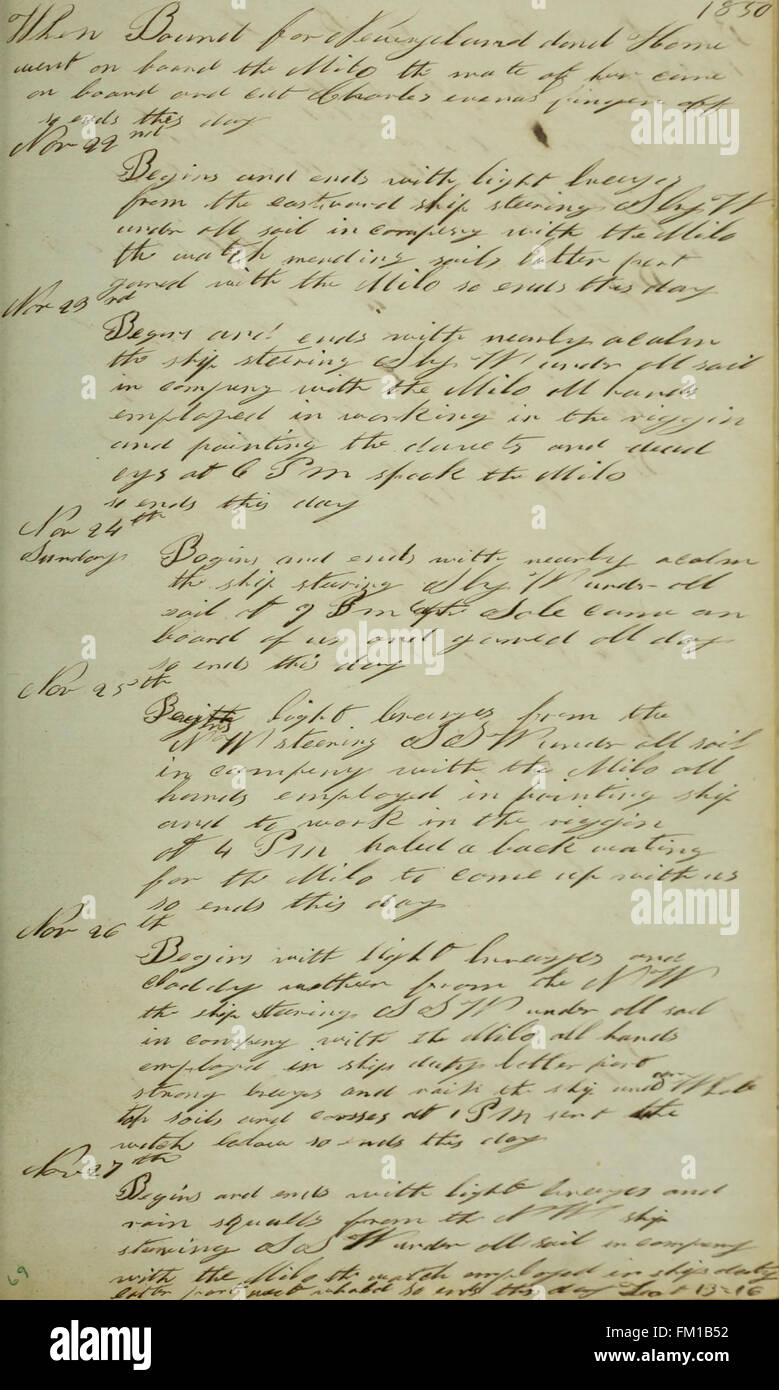 1850
When Bound for Newzeland and Home
went on board the Milo the mate of her came
on board and cut Charles evens finger off
so ends this day
Nov 22nd
Begins and ends with light breazes
from the eastward ship steering S by W
under all sail in company with the Milo
the watch mending sails latter part
gamed with the Milo so ends this day
Nov 23rd
Begins and ends with nearly a calm
the ship steering S by W under all sail
in company with the Milo all hands
employed in working in the riggin
and painting the davets and dead
eys at 6 PM spoak the Milo
so ends this day
Nov 24th
Sunday Begins and ends with nearly a calm
the ship stearing S by W under all
sail at 9
board of us and gamed all day
so ends this day
Nov 25th
light breazes from the
NW steering SSW under all sail
in company with the Milo all
hands employed in painting ship
and to work in the riggin
at 4 PM haled a back wating
for the Milo to come up with us
so ends this day
Nov 26th
Begins with light breazes and
from the NW
the ship stearing SSW under all sail
in company with the Milo all hands
employed in ships duty latter part
strong breazes and
top sails and corses at 1 PM sent the
watch below so ends this day
Nov 27th
Begins and ends with light breazes and
rain squalls from the NW ship
stearing SSW under all sail in company
with the Milo the watch employed in ships duty
latter part so ends this day Lat 13-16
69
alamy
alamy stock photo
FM1B52
www.alamy.com